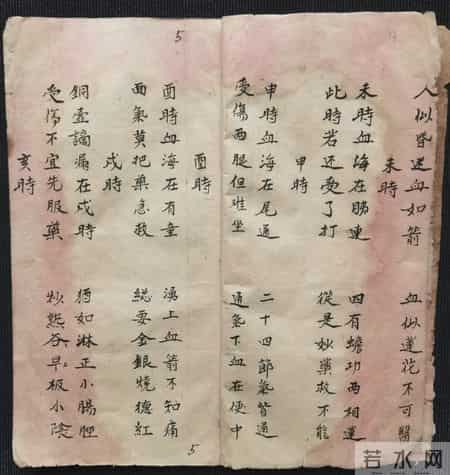 人似昏迷血如箭 血似蓮花不可醫
未時
未時血海在腸連 四有蟾功两相連
此時若还受了打 從是妙藥救不能
申時
申時血海在尾通 二十四節氣皆通
受傷两腿但难坐 通氣下血在便中
酉時
酉時血海在有重 湧上血箭不知痛
面氣莫把藥急救 總要金銀燒德紅
戌時
銅壷謫漏在戍時 猶如淋正小腸肥
受傷不宜先服藥 炒熟谷早板小陰
亥時
5
5
若水网